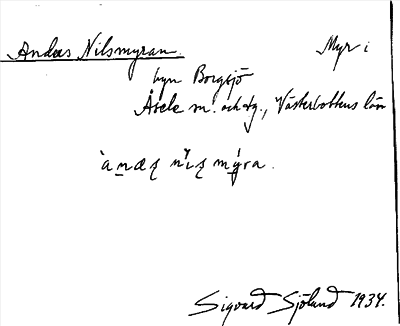 Anders Nilsmyran. Myr i
byn Borgsjö
Åsele sn. och tg., Västerbottens län
Sigvard Sjölund 1934.